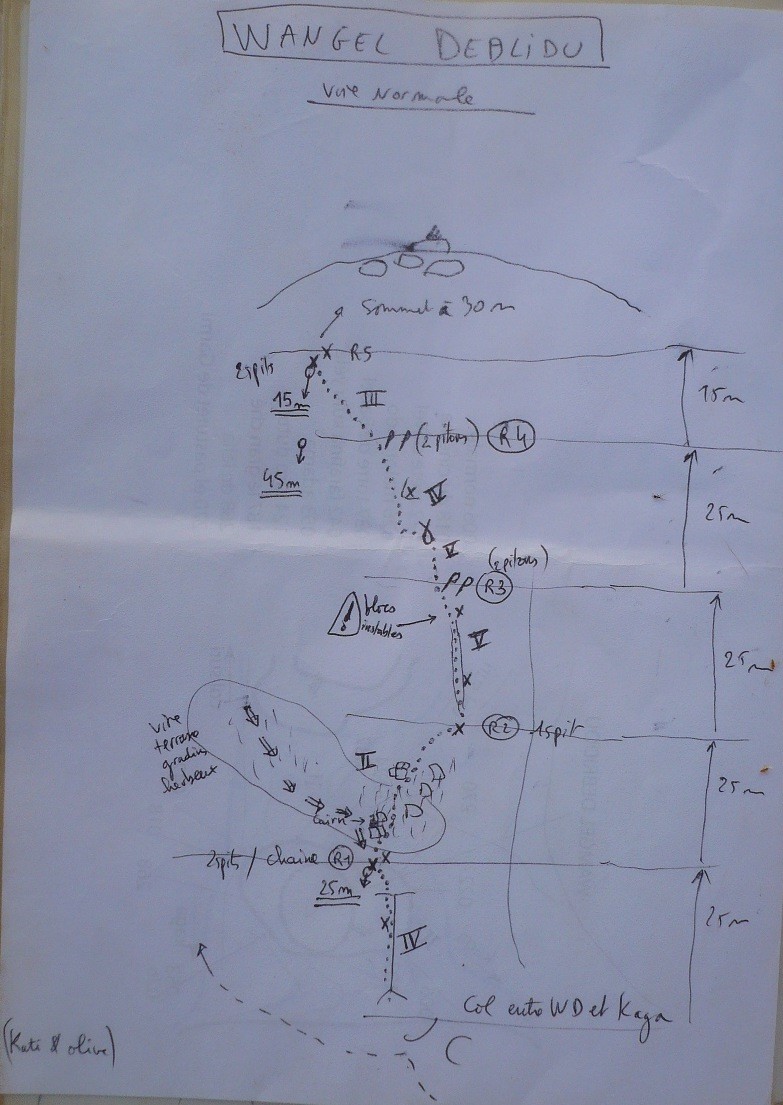 WANGEL DEBLIDU
Voie Normale
Sommet à 30 m
R5
2spits
15m
III
15m
PP (2 pitons) R4
45m
IV
25m
V
(2 pitons)
PP R3
! blocs
instables
V
25m
R2 1spit
vire
terrasse
gradins
herbeux
II
25m
Cairn
2spits / chaine R1
25m
25m
IV
Col entre WD et Kaga
(Kati & olive)